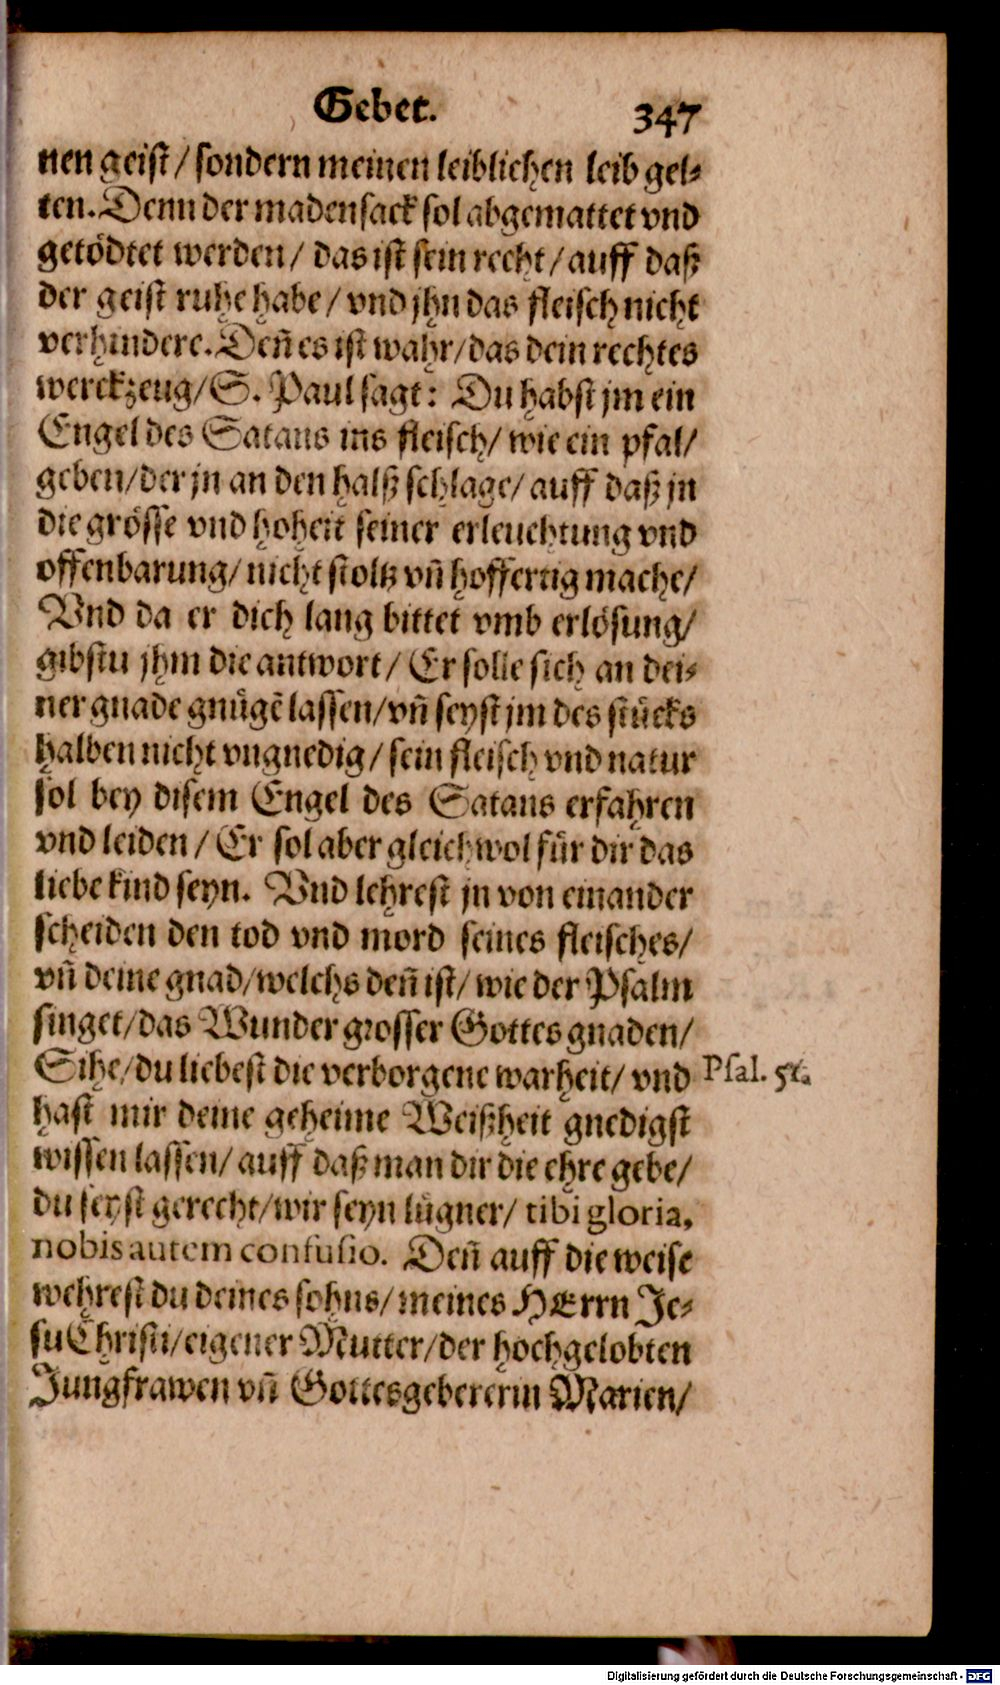 Gebet. 347
nen geist / sondern meinen leiblichen leib gel⸗
ten. Denn der madensack sol abgemattet vnd
getödtet werden / das ist sein recht / auff daß
der geist ruhe habe / vnd jhn das fleisch nicht
verhindere. Deñ es ist wahr / das dein rechtes
werckzeug / S. Paul sagt: Du habst jm ein
Engel des Satans ins fleisch / wie ein pfal /
geben / der jn an den halß schlage / auff daß jn
die grösse vnd hoheit seiner erleuchtung vnd
offenbarung / nicht stoltz vñ hoffertig mache /
Vnd da er dich lang bittet vmb erlösung /
gibstu jhm die antwort / Er solle sich an dei⸗
ner gnade gnügẽ lassen / vñ seyst jm des stücks
halben nicht vngnedig / sein fleisch vnd natur
sol bey disem Engel des Satans erfahren
vnd leiden / Er sol aber gleichwol für dir das
liebe kind seyn. Vnd lehrest jn von einander
scheiden den tod vnd mord seines fleisches /
vñ deine gnad / welchs deñ ist / wie der Psalm
singet / das Wunder grosser Gottes gnaden /
Sihe / du liebest die verborgene warheit / vnd Psal. 51.
hast mir deine geheime Weißheit gnedigst
wissen lassen / auff daß man dir die ehre gebe /
du seyst gerecht / wir seyn lügner / tibi gloria,
nobis autem confusio. Deñ auff die weise
wehrest du deines sohns / meines HErrn Je⸗
su Christi / eigener Mutter / der hochgelobten
Jungfrawen vñ Gottesgebererin Marien /
Digitalisierung gefördert durch die Deutsche Forschungsgemeinschaft - DFG